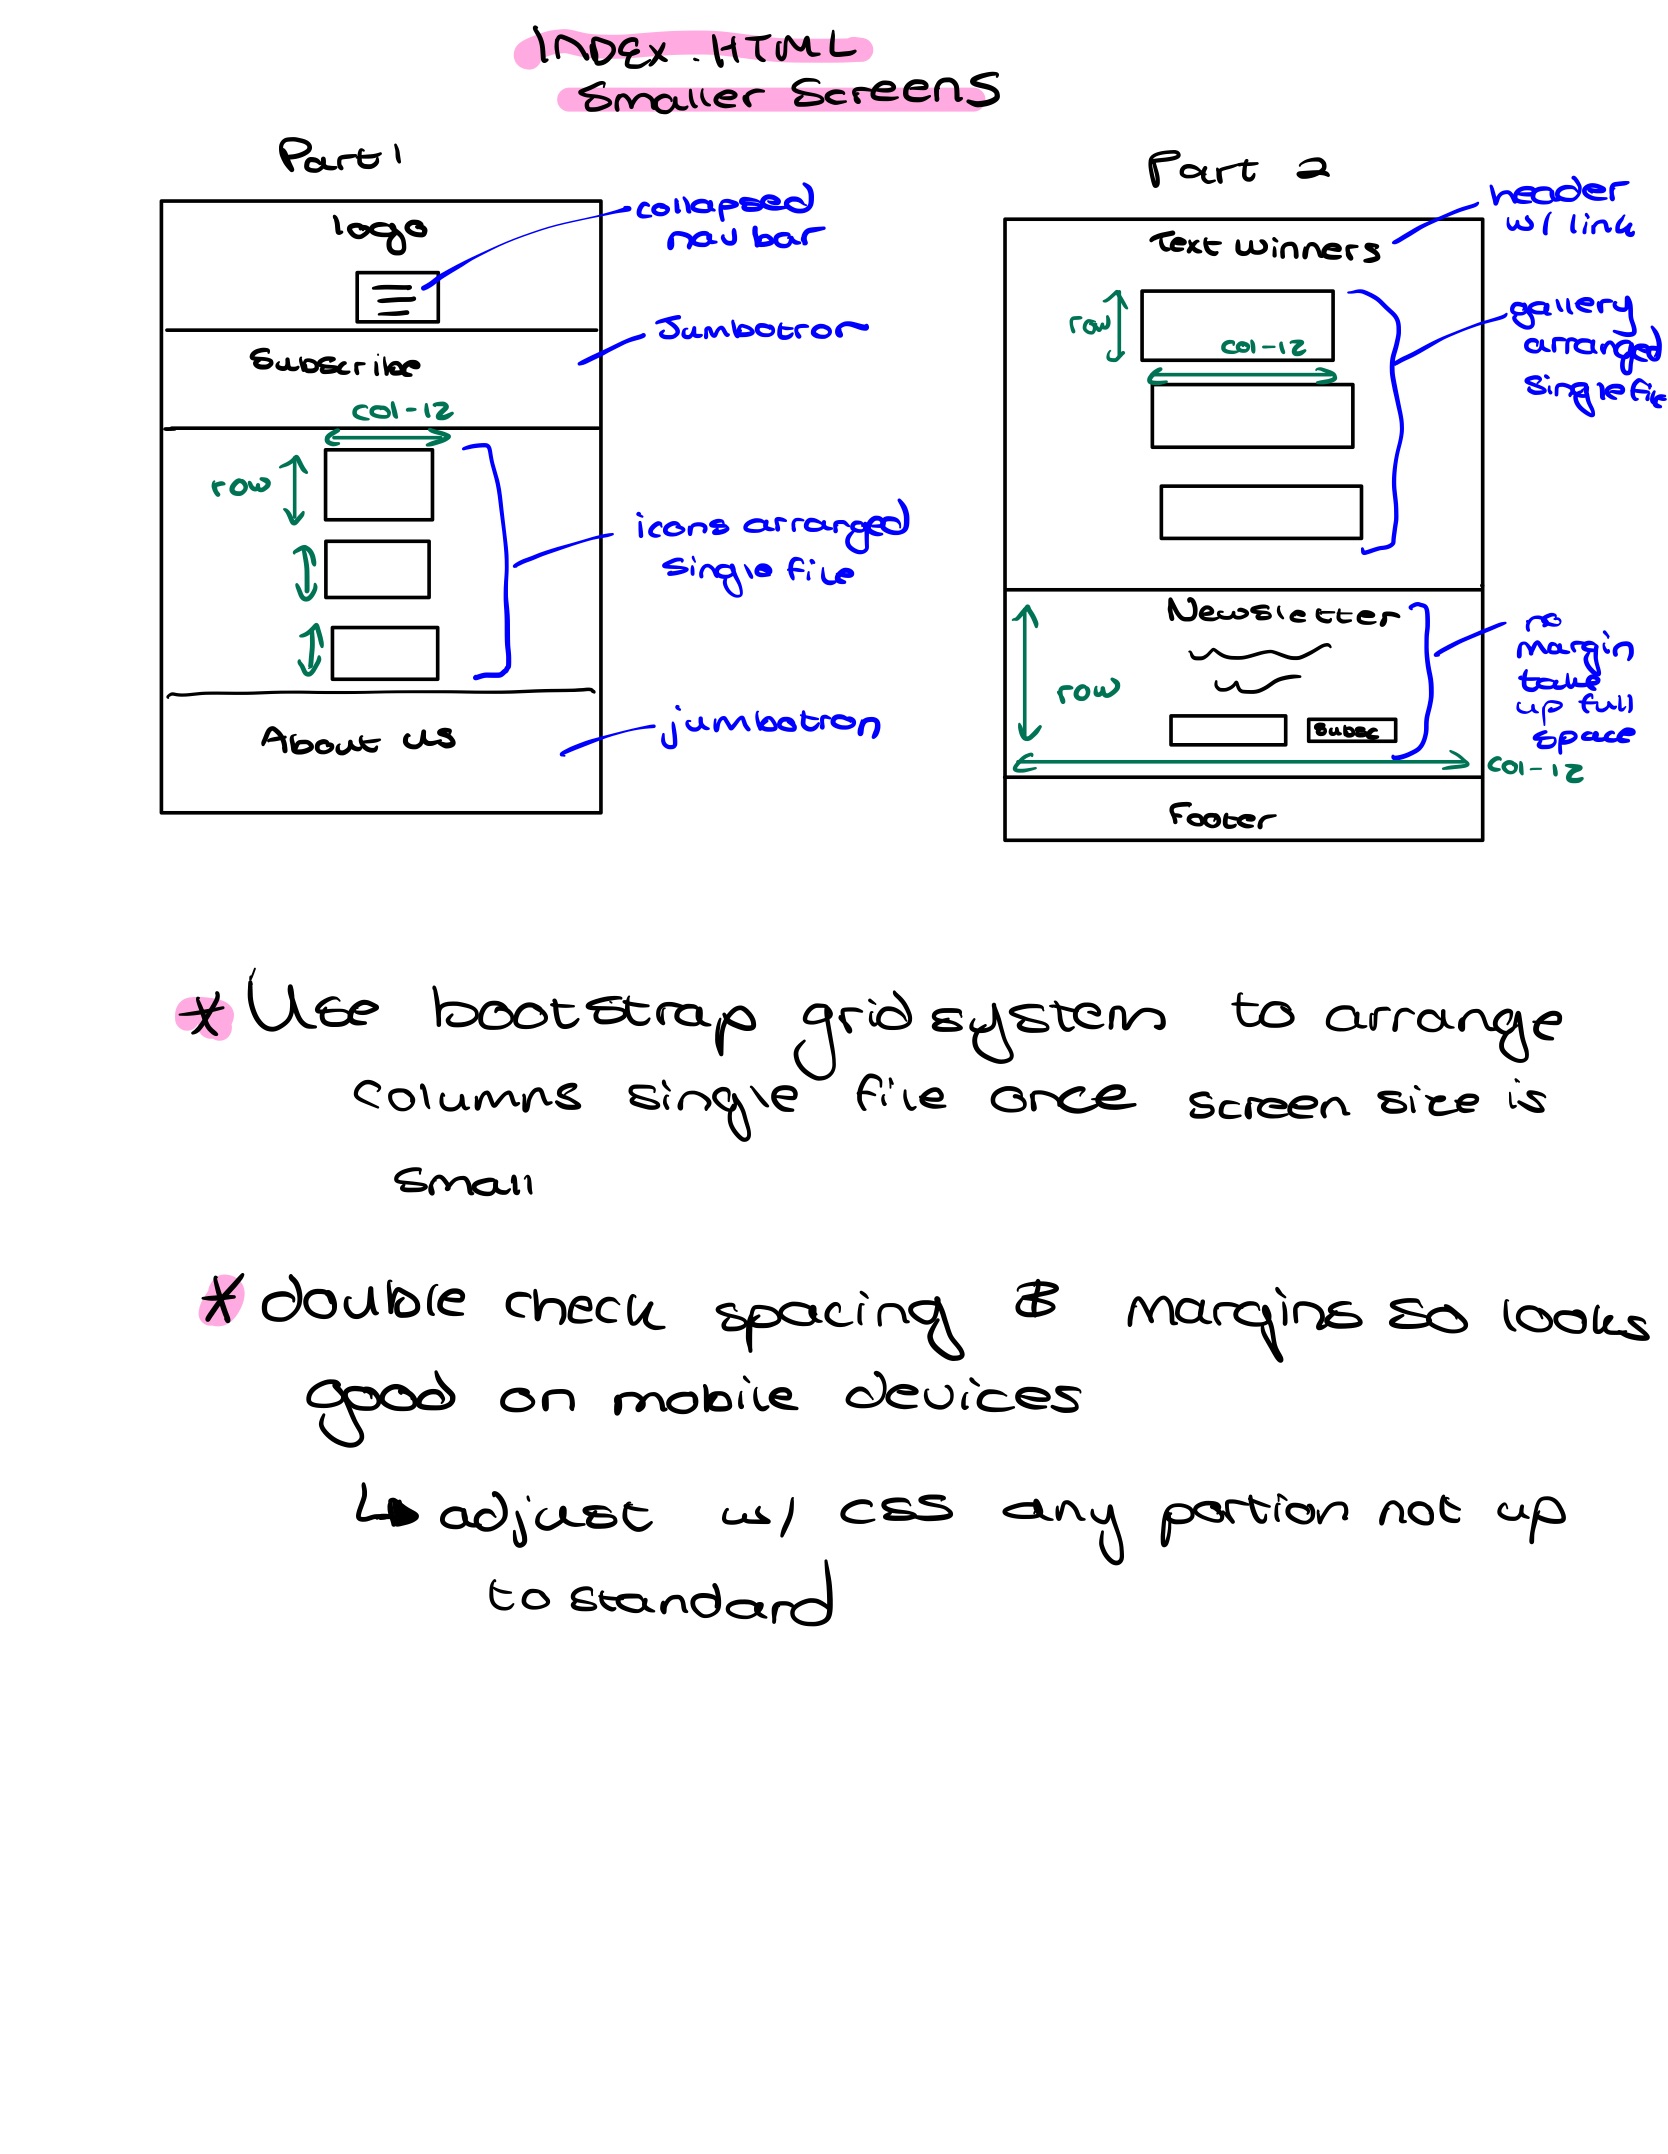 INDEX.HTML
Smaller Screens
Part 1
logo
collapsed
navbar
Subscribe
Jumbotron
col-12
row
icons arranged
single file
About us
jumbotron
Part 2
Text winners
header
w/ link
row
col-12
gallery
arranged
single file
Newsletter
row
Subsc
no
margin
take
up full
space
col-12
Footer
* Use bootstrap grid system to arrange
columns single file once screen size is
small
* double check spacing & margins so looks
good on mobile devices
↳ adjust w/ css any portion not up
to standard